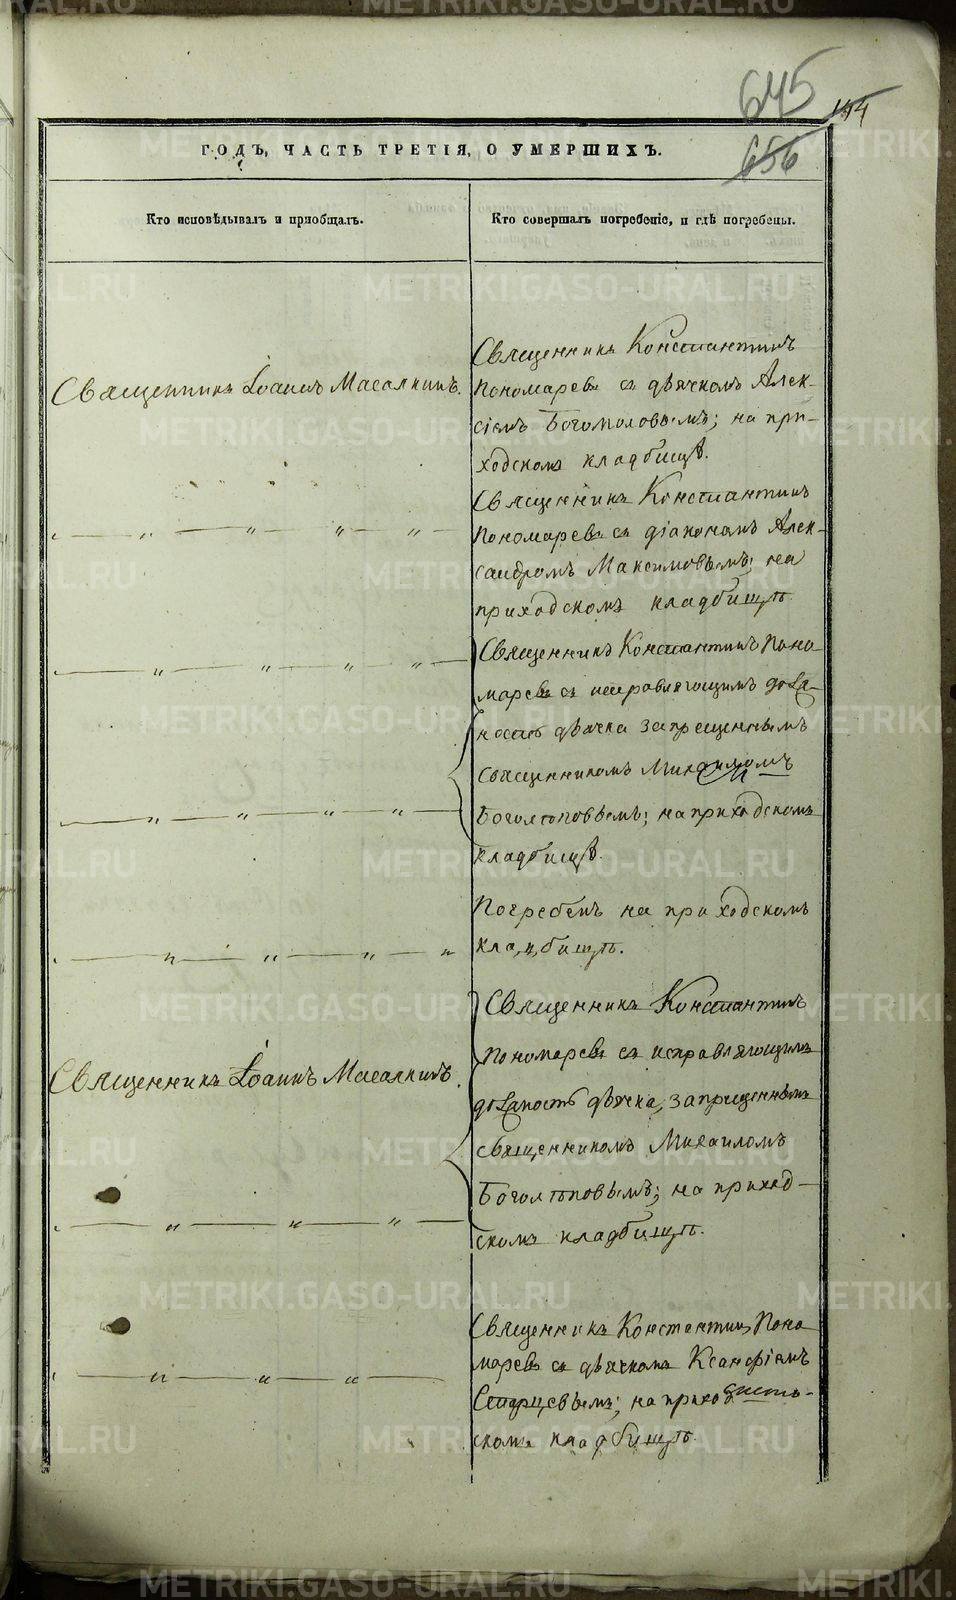 645
144
656
ГОДЪ, ЧАСТЬ ТРЕТІЯ, О УМЕРШИХЪ.
Кто исповѣдывалъ и пріобщалъ.
Кто совершалъ погребеніе, и гдѣ погребены.
Священникъ Іоаннъ Масалкинъ.
Священникъ Константинъ
Пономаревъ съ дьячкомъ Алек-
сіемъ Богомоловымъ; на при-
ходскомъ кладбищѣ.
„ „ „ „
Священникъ Константинъ
Пономаревъ съ діакономъ Алек-
сандромъ Максимовымъ; на
приходскомъ кладбищѣ.
„ „ „ „
Священникъ Константинъ Поно-
маревъ съ исправляющимъ дол-
ность дьячка запрещеннымъ
священникомъ Михаиломъ
„ „ „ „
Боголѣповымъ; на приходскомъ
кладбищѣ.
Погребенъ на приходскомъ
кладбищѣ.
„ „ „ „
Священникъ Іоаннъ Масалкинъ.
Священникъ Константинъ
Пономаревъ съ исправляющимъ
должность дьячка, запрещеннымъ
священникомъ Михаиломъ
Боголѣповымъ; на приход-
скомъ кладбищѣ.
„ „ „
Священникъ Константинъ Поно-
маревъ съ дьячкомъ Ксанфіемъ
„ „ „
Старцевымъ; на
скомъ кладбищѣ.
METRIKI.GASO-URAL.RU